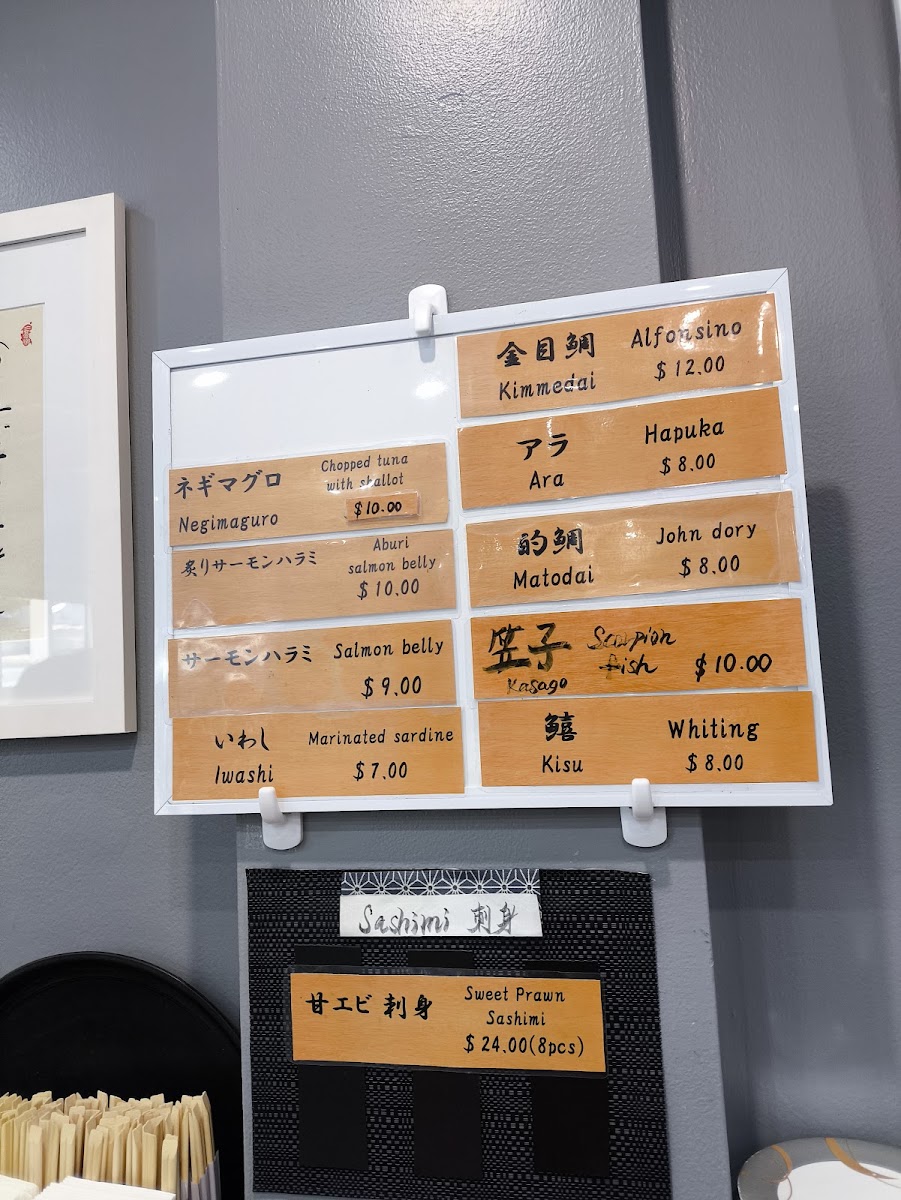 ネギマグロ
Negimaguro
Chopped tuna
with shallot
$10.00
炙りサーモンハラミ
Aburi
salmon belly
$10.00
サーモンハラミ
Salmon belly
$9.00
いわし
Iwashi
Marinated sardine
$7.00
金目鯛
Kimmedai
Alfonsino
$12.00
アラ
Ara
Hapuka
$8.00
的鯛
Matodai
John dory
$8.00
笠子
Kasago
Scorpion
fish
$10.00
鱚
Kisu
Whiting
$8.00
Sashimi 刺身
甘エビ刺身
Sweet Prawn
Sashimi
$24.00(8pcs)